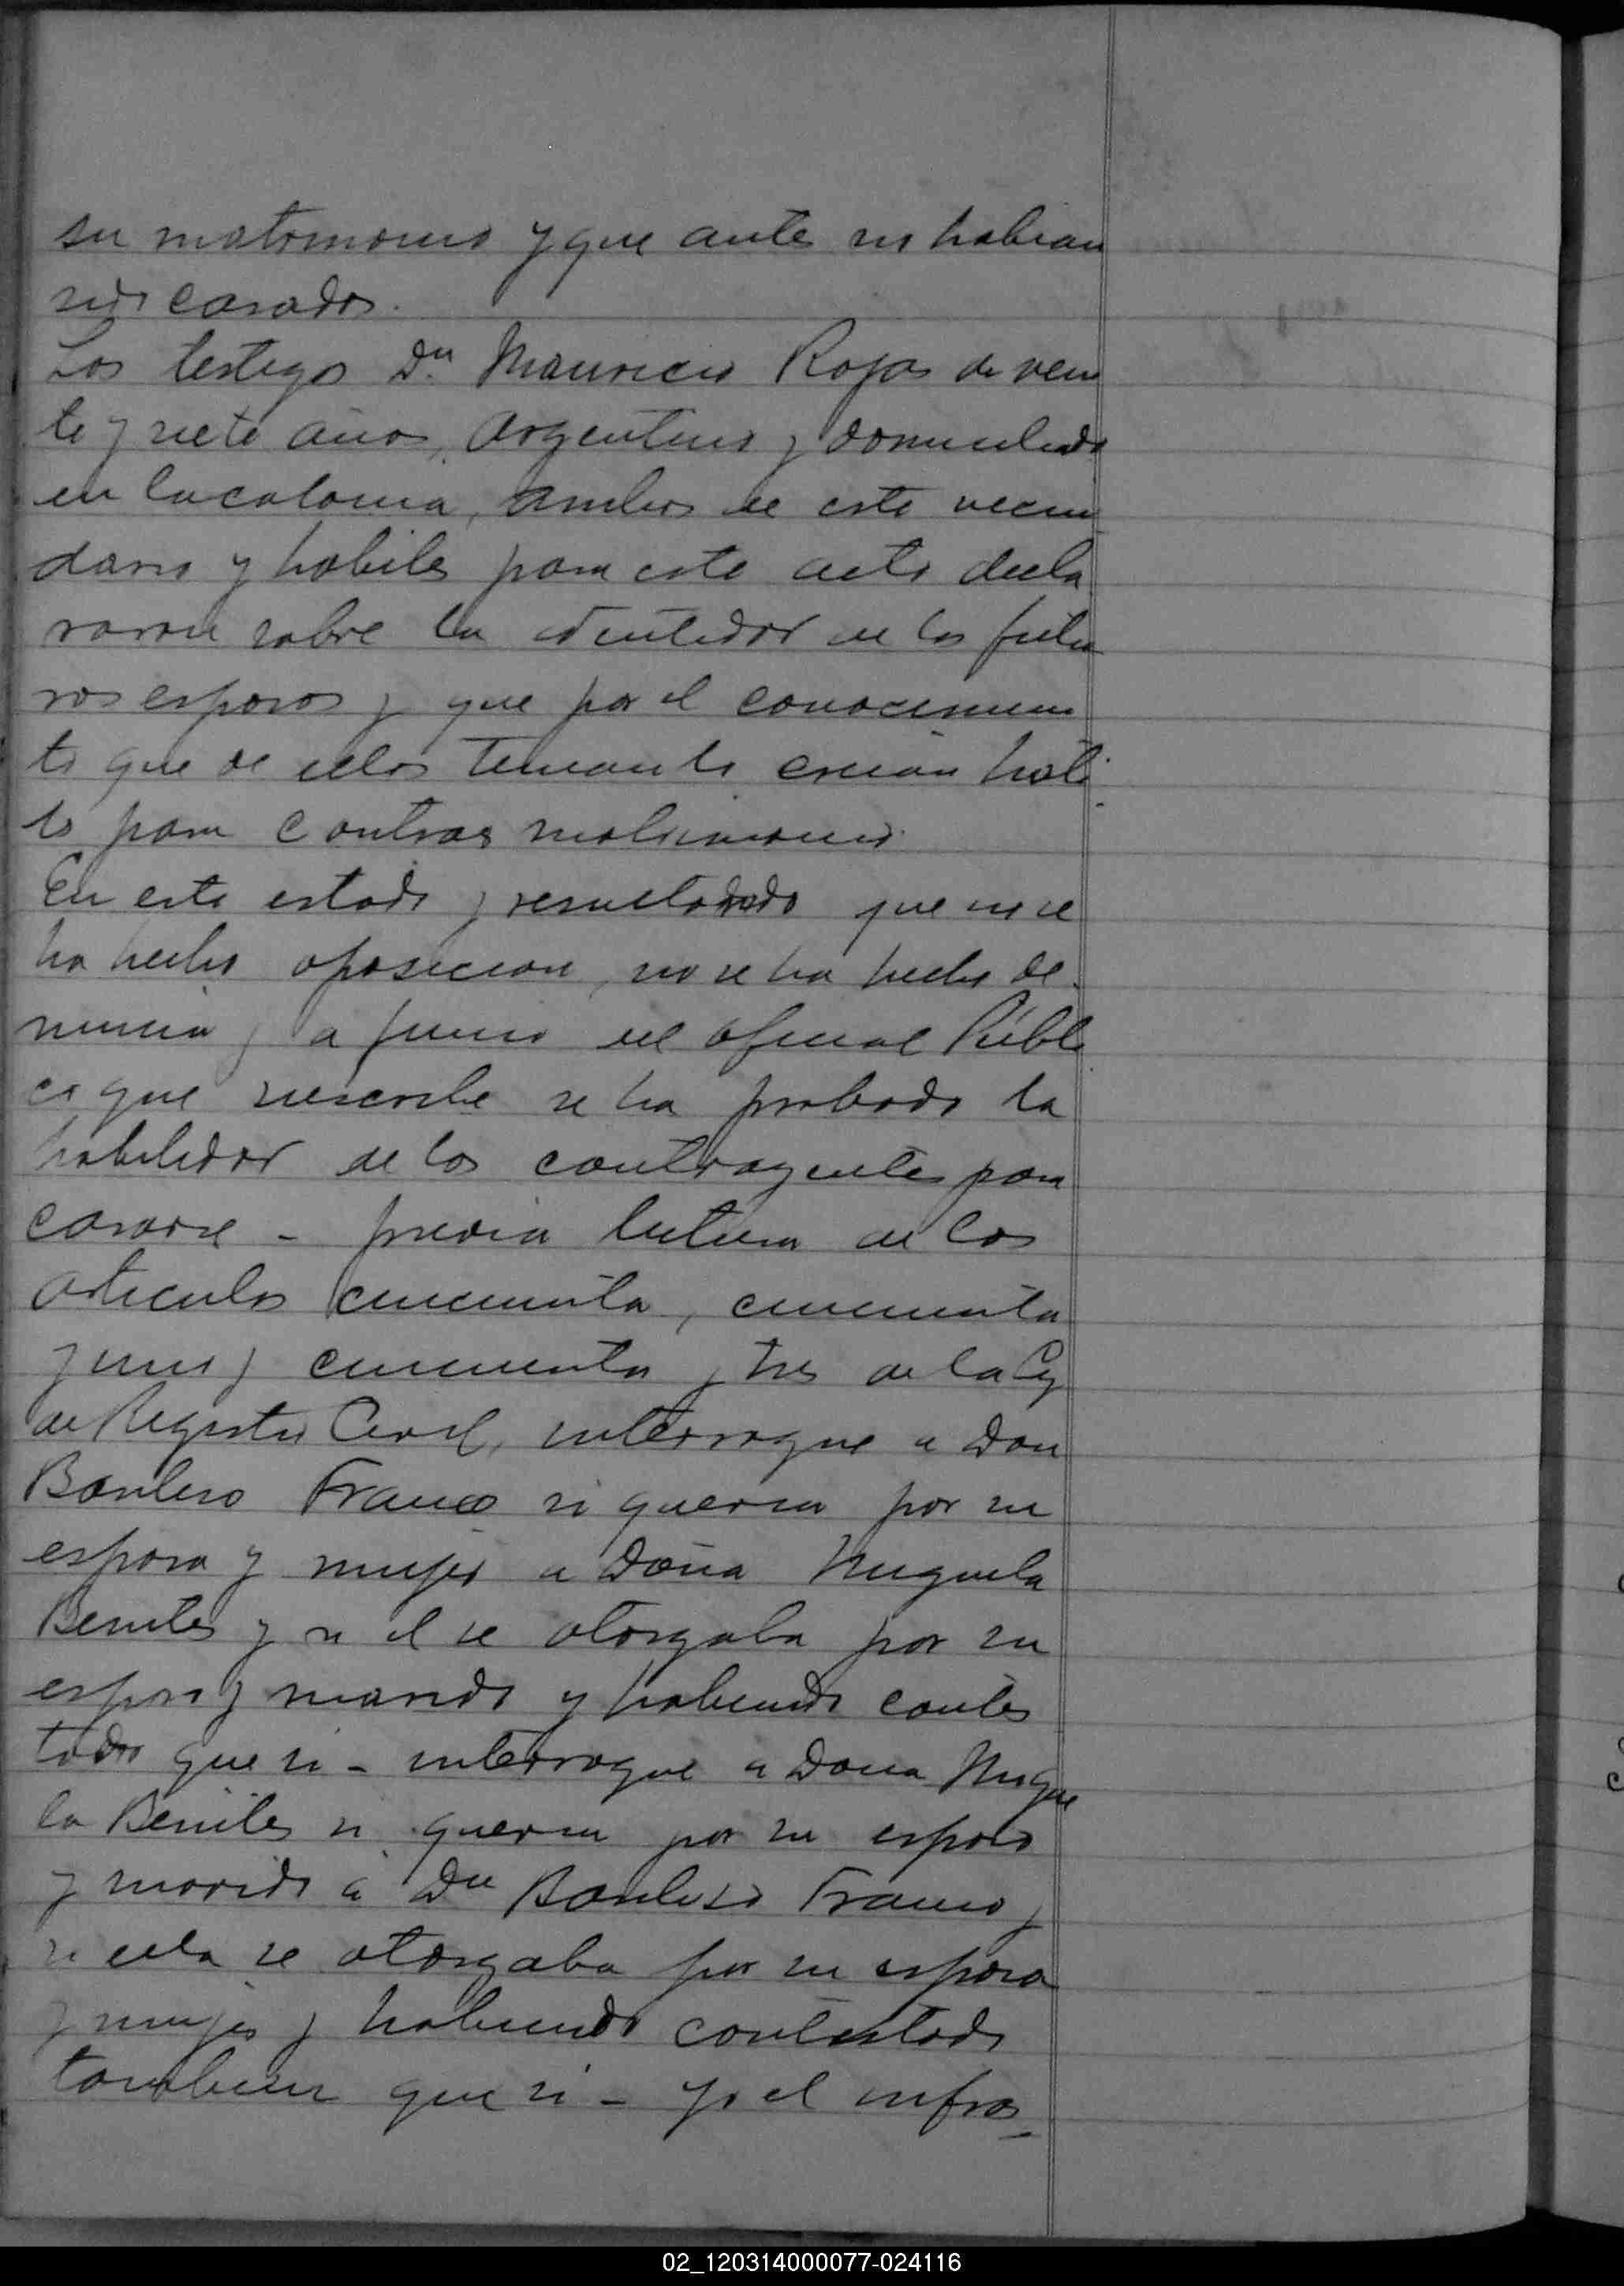 su matrimonio y que antes no habian
sido casados.
Los testigos Dn Mauricio Rojas de vein
te y siete años, Argentino y domiciliado
en la colonia, ambos de este vecin
dario y habiles para este acto decla
raron sobre la identidad de los futu
ros esposos y que por el conocimien
to que de ellos tenian los creian habi
les para contraer matrimonio.
En este estado y resultando que no se
ha hecho oposicion, no se ha hecho de
nuncia y a juicio del oficial Públi
co que suscribe se ha probado la
habilidad de los contrayentes para
casarse - previa lectura de los
articulos cincuenta, cincuenta
y uno y cincuenta y tres de la Ley
de Registro Civil, interrogue a Don
Franco si queria por su
esposa y mujer a Doña Miguela
Benites y si el se otorgaba por su
esposo y marido y habiendo contes
tado que si - interrogue a Doña Migue
la Benites si queria por su esposo
y marido a Dn Franco y
si ella se otorgaba por su esposa
y mujer y habiendo contestado
tambien que si - yo el infras
02_120314000077-024116